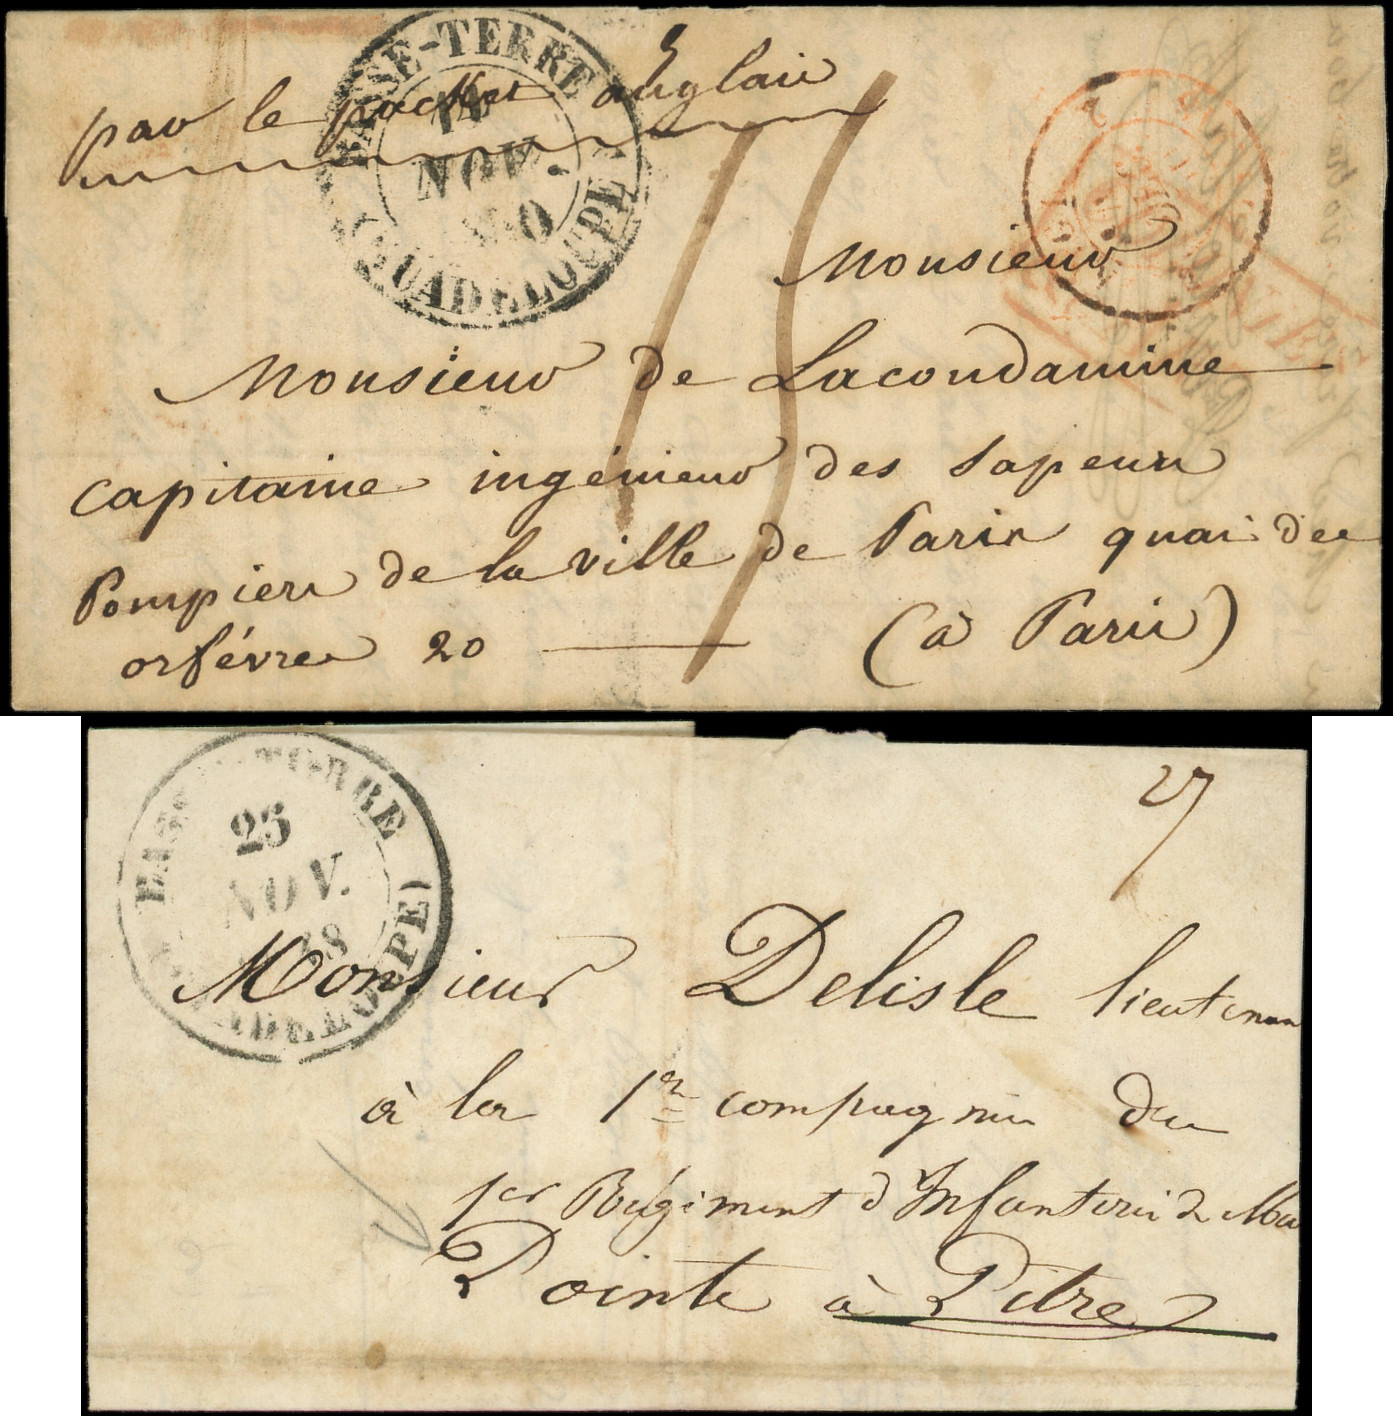 BASSE-TERRE
NOV.
(GUADELOUPE)
par le packet anglais
Monsieur
Monsieur de Lacondamine
Capitaine ingénieur des Sapeurs
Pompiers de la ville de Paris quai des
orfévres 20 (à Paris)
BASSE-TERRE
25
NOV.
38
(GUADELOUPE)
27
Monsieur Delisle lieutenan
à la 1re compagnie du
1er Régiment d'Infanterie de Ma
Pointe à Pitre